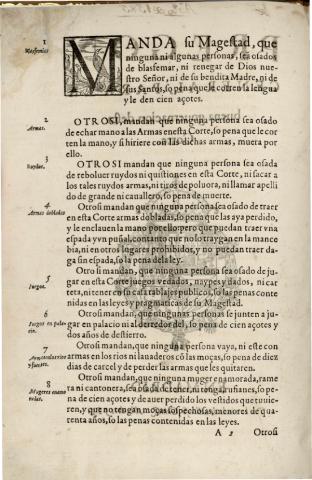 1
Blasfemias
MANDA su Magestad, que
ninguna ni algunas personas, sea osados
de blasfemar, ni renegar de Dios nue-
stro Señor, ni de su bendita Madre, ni de
sus Santos, so pena que le corten la lengua
y le den cien açotes.
2
Armas.
OTROSI, mandan que ninguna persona sea osada
de echar mano a las Armas en esta Corte, so pena que le cor
ten la mano, y si hiriere con las dichas armas, muera por
ello.
3
Ruydos.
OTROSI mandan que ninguna persona sea osada
de reboluer ruydos ni quistiones en esta Corte, ni sacar a
los tales ruydos armas, ni tiros de poluora, ni llamar apelli
do de grande ni cauallero, so pena de muerte.
4
Armas dobladas
Otrosi mandan que ninguna persona sea osada de traer
en esta Corte armas dobladas, so pena que las aya perdido, y
le enclauen la mano por ello: pero que puedan traer vna
espada y vn puñal, contanto que no lo traygan en la mance
bia, ni en otros lugares prohibidos, y no puedan traer da-
ga sin espada, so la pena de la ley.
5
Juegos.
Otrosi mandan, que ninguna persona sea osada de ju-
gar en esta Corte juegos vedados, naypes y dados, ni car
teta, ni tener en su casa tablajes publicos, so las penas conte
nidas en las leyes y pragmaticas de su Magestad.
6
Juegos en pala-
cio.
Otrosi mandan, que ningunas personas se junten a ju-
gar en palacio ni al derredor del, so pena de cien açotes y
dos años de destierro.
7
Otrosi mandan, que ninguna persona vaya, ni este con
armas en los rios ni lauaderos có las moças, so pena de diez
dias de carcel y de perder las armas que les quitaren.
8
Mugeres enamo
radas.
Otrosi mandan, que ninguna muger enamorada, rame
ra ni cantonera, sea osada de tener, ni tenga rufianes, so pe-
na de cien açotes y de auer perdido los vestidos que tuuie-
ren, y que no tengan moças sospechosas, menores de qua-
renta años, so las penas contenidas en las leyes.
A 2 Otrosi